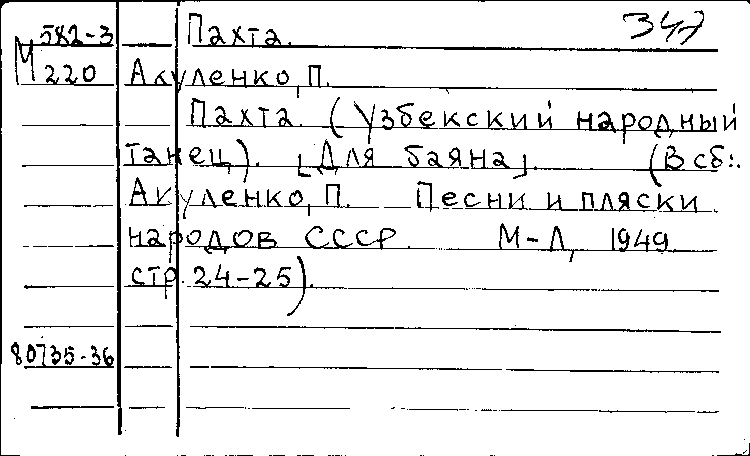 582-3 Пахта. 347
М 220 Акуленко, П.
Пахта. (Узбекский народный
танец). [Для баяна]. (В сб.:
Акуленко, П. Песни и пляски
народов СССР. М-Л, 1949
стр. 24-25).
80735-36